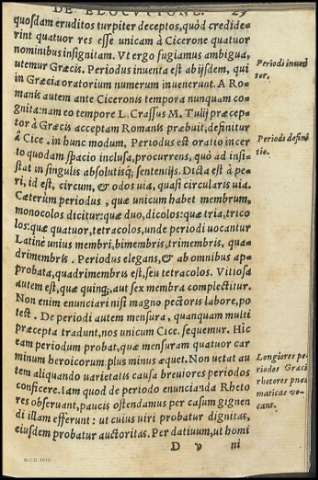 DE ELOCVTIONE. 29
quosdam eruditos turpiter deceptos, quòd credide-
rint quatuor res esse unicam à Cicerone quatuor
nominibus insignitam. Vt ergo fugiamus ambigua,
utemur Græcis. Periodus inuenta est ab ijsdem, qui
in Græcia oratorium numerum inuenerunt. A Ro-
manis autem ante Ciceronis tempora nunquam co-
gnita: nam eo tempore L. Crassus M. Tulij præcep-
tor à Græcis acceptam Romanis præbuit, definitur
à Cice. in hunc modum. Periodus est oratio incer
to quodam spacio inclusa, procurrens, quò ad insi-
stat in singulis absolutisq; sententijs. Dicta est à pe-
ri, id est, circum, & odos uia, quasi circularis uia.
Cæterùm periodus, quæ unicum habet membrum,
monocolos dicitur: quæ duo, dicolos: quæ tria, trico
los: quæ quatuor, tetracolos, unde periodi uocantur
Latinè unius membri, bimembris, trimembris, qua-
drimembris. Periodus elegans, & ab omnibus ap-
probata, quadrimembris est, seu tetracolos. Vitiosa
autem est, quæ quinq;, aut sex membra complectitur.
Non enim enunciari nisi magno pectoris labore, po
test. De periodi autem mensura, quanquam multi
præcepta tradunt, nos unicum Cice. sequemur. Hic
eam periodum probat, quæ mensuram quatuor car
minum heroicorum plus minus æquet. Non uetat au
tem aliquando uarietatis causa breuiores periodos
conficere. Iam quod de periodo enuncianda Rheto
res obseruant, paucis ostendamus per casum gignen
di illam efferunt: ut cuius uiri probatur dignitas,
eiusdem probatur auctoritas. Per datiuum, ut homi
D v ni
Periodi inuen
tor.
Periodi defini
tio.
Longiores pe-
riodos Græci
rhetores pneu
maticas uo-
cant.